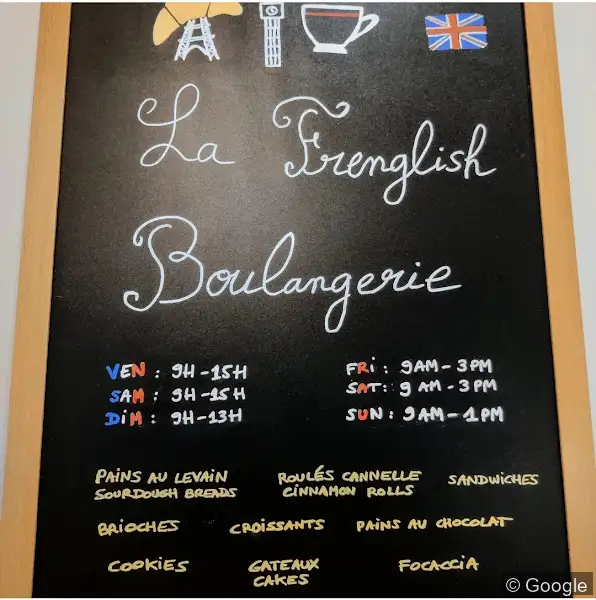 La Frenglish
Boulangerie
VEN : 9H - 15H
SAM : 9H - 15H
DiM : 9H - 13H
FRi : 9AM - 3PM
SAT : 9AM - 3PM
SUN : 9AM - 1PM
PAINS AU LEVAIN
SOURDOUGH BREADS
ROULÉS CANNELLE
CINNAMON ROLLS
SANDWICHES
BRIOCHES
CROISSANTS
PAINS AU CHOCOLAT
COOKIES
GATEAUX
CAKES
FOCACCIA
© Google